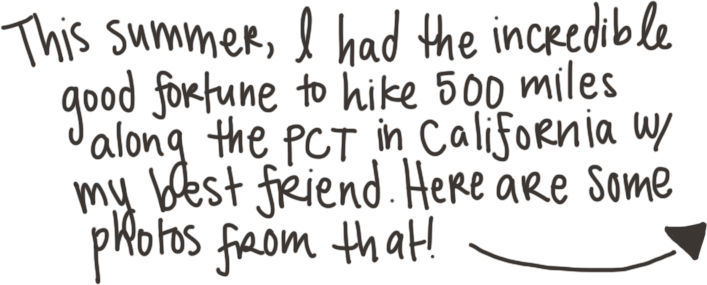 This summer, I had the incredible
good fortune to hike 500 miles
along the PCT in California w/
my best friend. Here are some
photos from that!